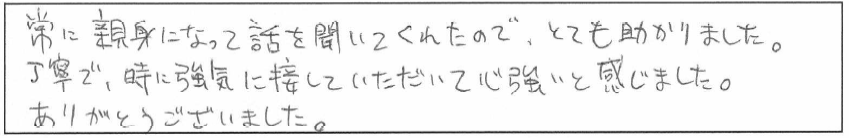 常に親身になって話を聞いてくれたので、とても助かりました。
丁寧で、時に強気に接していただいて心強いと感じました。
ありがとうございました。